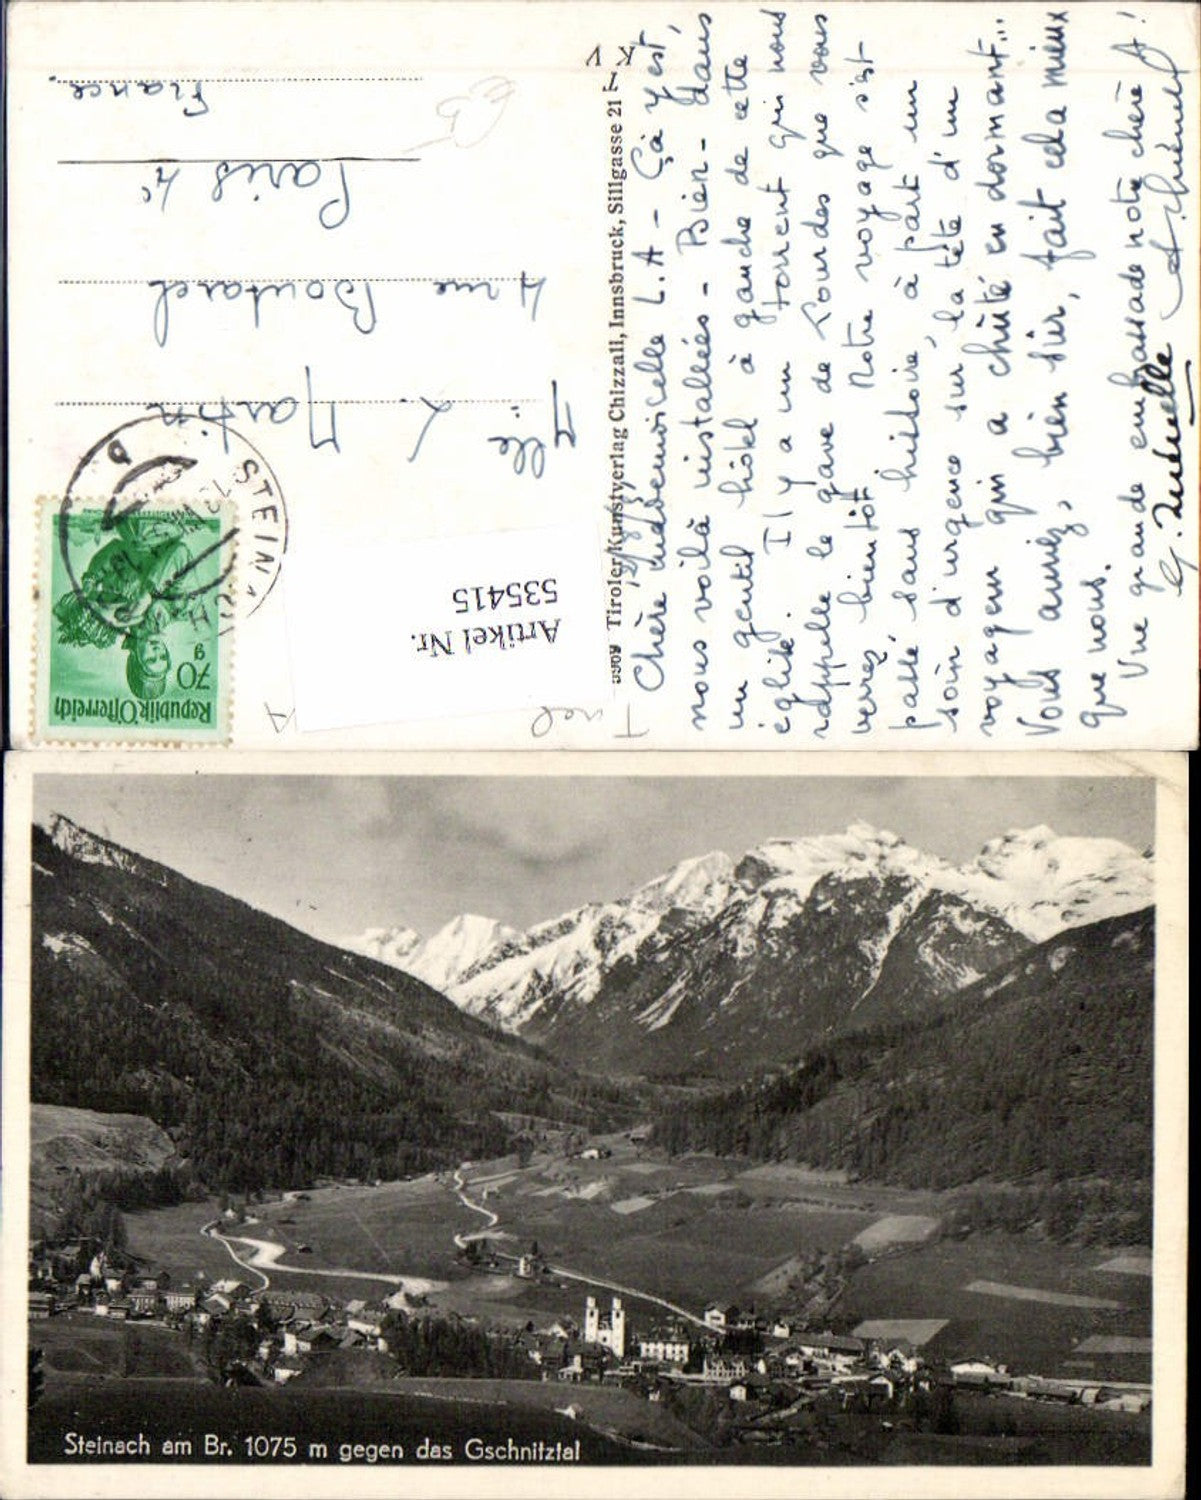 Tiroler Kunstverlag Chizzali, Innsbruck, Sillgasse 21
K V
Chère Mademoiselle L.A - Çà y est,
nous voilà installées - Bien - dans
un gentil hôtel à gauche de cette
église. Il y a un torrent qui nous
rappelle le gave de Lourdes que vous
verrez bientôt Notre voyage s'est
passé sans histoire, à part un
soin d'urgence sur la tête d'un
voyageur qui a chûté en dormant...
Vous auriez, bien sûr, fait cela mieux
que nous.
Une grande embrassade notre chère A!
Mlle L. Martin
4 rue Boutarel
Paris 4e
France
Tirol
STEINACH
Republik Österreich
70 g
Artikel Nr.
535415
Steinach am Br. 1075 m gegen das Gschnitztal